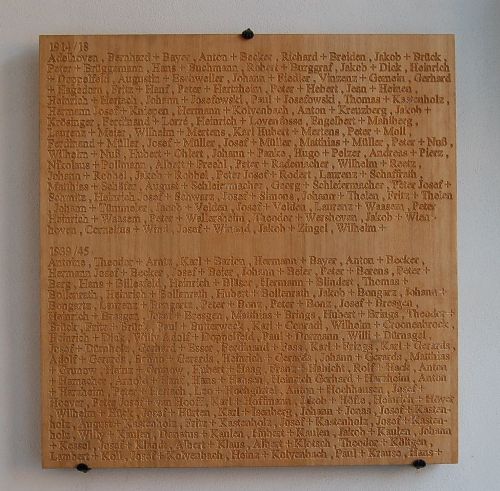 1914/18
Adelhoven , Bernhard + Bayer , Anton + Becker , Richard + Breiden , Jakob + Brück ,
Peter + Brüggemann , Hans + Buchmann , Robert + Burggraf , Jakob + Dick , Heinrich
+ Doppelfeld , Augustin + Eschweiler , Johann + Fiedler , Vinzenz + Gemein , Gerhard
+ Hagedorn , Fritz + Hanf , Peter + Hertzheim , Peter + Hebert , Jean + Heinen ,
Heinrich + Hertach , Johann + Josefowski , Paul + Josefowski , Thomas + Kastenholz ,
Hermann Josef + Kniepen , Hermann + Kolvenbach , Anton + Kreuzberg , Jakob +
Krösinger , Ferdinand + Lorré , Heinrich + Lovenfosse , Engelbert + Mahlberg ,
Laurenz + Meier , Wilhelm + Mertens , Karl Hubert + Mertens , Peter + Moll ,
Ferdinand + Müller , Josef + Müller , Josef + Müller , Matthias + Müller , Peter + Nuß ,
Wilhelm + Nuß , Hubert + Ohlert , Johann + Panke , Hugo + Pelzer , Andreas + Pierz ,
Nikolaus + Pollmann , Albert + Prechl , Peter + Rademacher , Wilhelm + Reetz ,
Johann + Robbel , Jakob + Robbel , Peter Josef + Rodert , Laurenz + Schaffrath ,
Matthias + Schäfer , August + Schleiermacher , Georg + Schleiermacher , Peter Josef +
Schmitz , Heinrich Josef + Schwarz , Josef + Simons , Johann + Thelen , Fritz + Thelen
Johann + Tümmeler , Jacob + Velden , Josef + Velden , Laurenz + Waasem , Peter
Heinrich + Waasem , Peter + Wellersheim , Theodor + Wershoven , Jakob + Wien
hoven , Cornelius + Wind , Josef + Winand , Jakob + Zingel , Wilhelm +
1939/45
Antoine , Theodor + Arntz , Karl + Barion , Hermann + Bayer , Anton + Becker ,
Hermann Josef + Becker , Josef + Beier , Johann + Beier , Peter + Berens , Peter +
Berg , Hans + Gillesfeld , Heinrich + Bläser , Hermann + Blindert , Thomas +
Bollenrath , Heinrich + Bollenrath , Hubert + Bollenrath , Jakob + Bongartz , Johann +
Bongartz , Laurenz + Bongartz , Peter + Bonz , Peter + Bonz , Josef + Bresgen ,
Heinrich + Bresgen , Josef + Bresgen , Matthias + Brings , Hubert + Brings , Theodor +
Brück , Fritz + Brück , Paul + Butterweck , Karl + Conradi , Wilhelm + Croonenbrock ,
Heinrich + Dick , Willy Adolf + Doppelfeld , Paul + Dormann , Willi + Dürnagel ,
Josef + Dürholz , Gerhard + Esser , Ferdinand + Fass , Karl + Frings , Karl + Gerards ,
Adolf + Gerards , Erwin + Gerards , Heinrich + Gerards , Johann + Gerards , Matthias
+ Grunow , Heinz + Grunow , Hubert + Haag , Franz + Habicht , Rolf + Hack , Anton
+ Hamacher , Arnold + Hans , Hans + Hansen , Heinrich Gerhard + Harzheim , Anton
+ Herzheim , Peter + Heinen , Leo + Hochgürtel , Anton + Hochhausen , Josef +
Hoever , Peter Josef + Hoffmann , Karl + Hoffmann , Jakob + Höfle , Heinrich + Hover
Wilhelm + Hück , Josef + Hürten , Karl + Isenberg , Johann + Jonas , Josef + Kasten-
holz , August + Kastenholz , Fritz + Kastenholz , Josef + Kastenholz , Josef + Kasten-
holz , Willy + Kaulen , Donatus + Kaulen , Hubert + Kaulen , Jakob + Kaulen , Johann
+ Kessel , Josef + Klinder , Albert + Klaus , Albert + Klotsch , Theodor + Költgen ,
Lambert + Köll , Josef + Kolvenbach , Heinz + Kolvenbach , Paul + Krause , Hans +